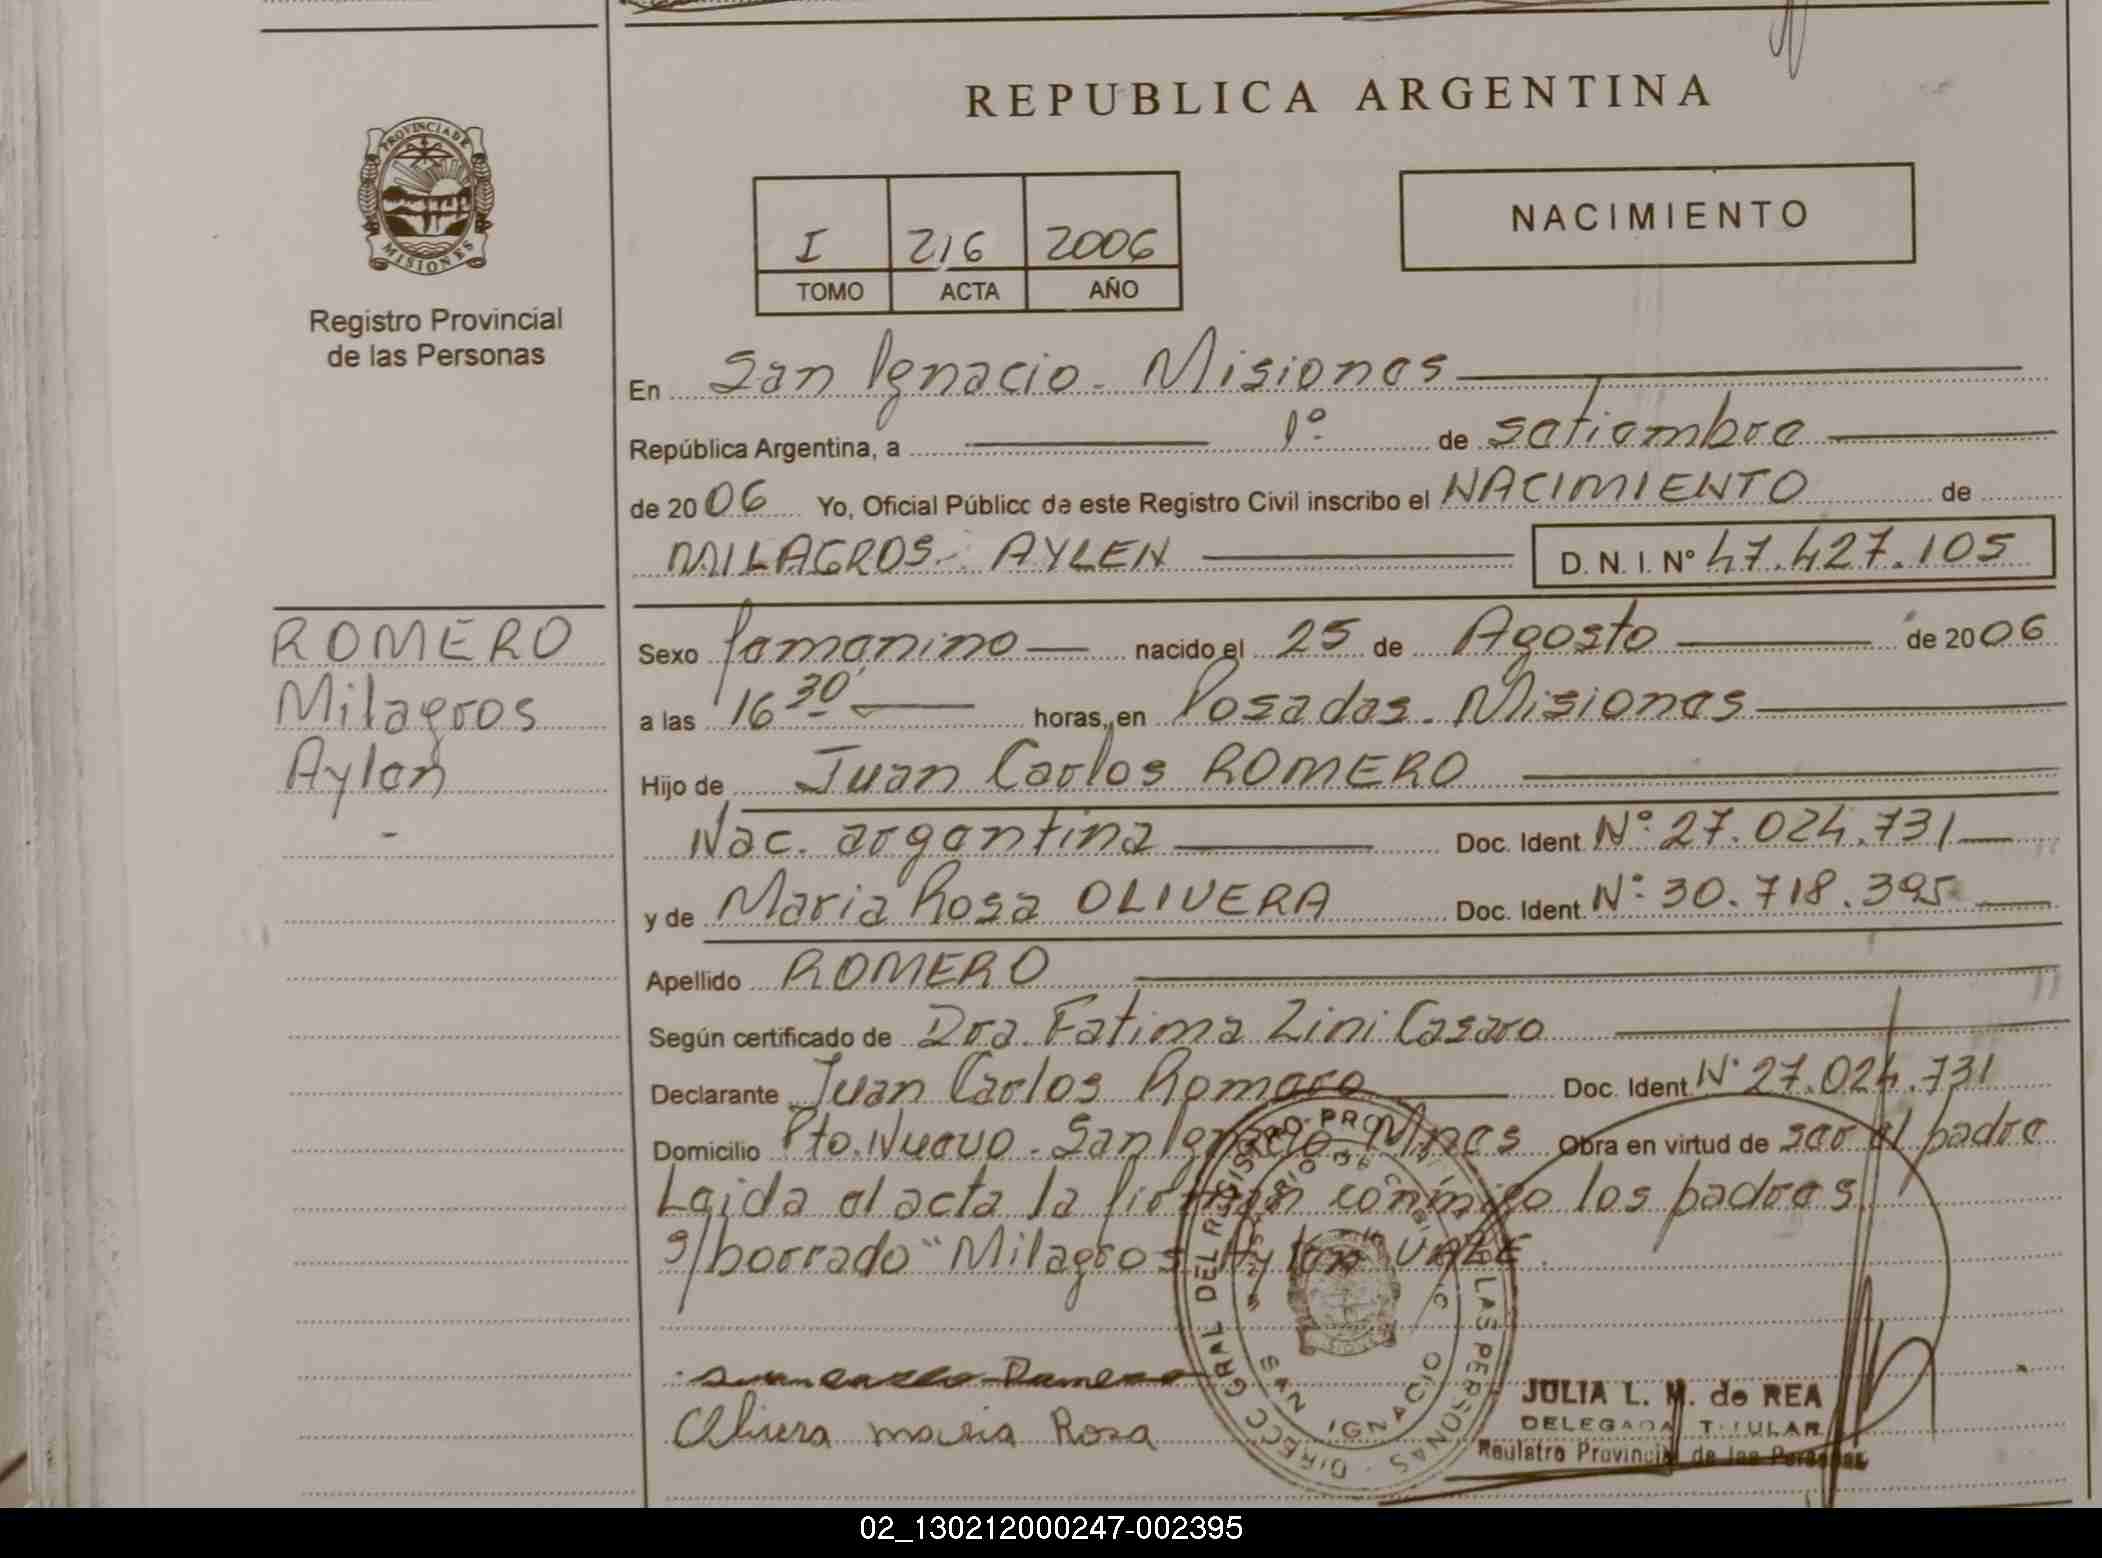 REPUBLICA ARGENTINA
PROVINCIA DE
MISIONES
Registro Provincial
de las Personas
I 216 2006
TOMO ACTA AÑO
NACIMIENTO
En San Ignacio - Misiones
República Argentina, a 1º de setiembre
de 2006 Yo, Oficial Público de este Registro Civil inscribo el NACIMIENTO de
MILAGROS AYLEN D. N. I. Nº 47.427.105
ROMERO
Milagros
Aylen
-
Sexo femenino nacido el 25 de Agosto de 2006
a las 16 30' horas, en Posadas - Misiones
Hijo de Juan Carlos ROMERO
Nac. argentina Doc. Ident. Nº 27.024.731
y de Maria Rosa OLIVERA Doc. Ident. Nº 30.718.395
Apellido ROMERO
Según certificado de Dra. Fatima Zini Casaro
Declarante Juan Carlos Romero Doc. Ident. Nº 27.024.731
Domicilio Pto. Nuevo - San Ignacio Mnes Obra en virtud de ser el padre
Leida el acta la firman conmigo los padres
s/borrado "Milagros Aylen VALE.
Olivera maria Rosa
DIRECC GRAL DEL REGISTRO PROV DE LAS PERSONAS
SAN IGNACIO
JULIA L. M. de REA
DELEGADA TITULAR
Registro Provincial de las Personas
02_130212000247-002395